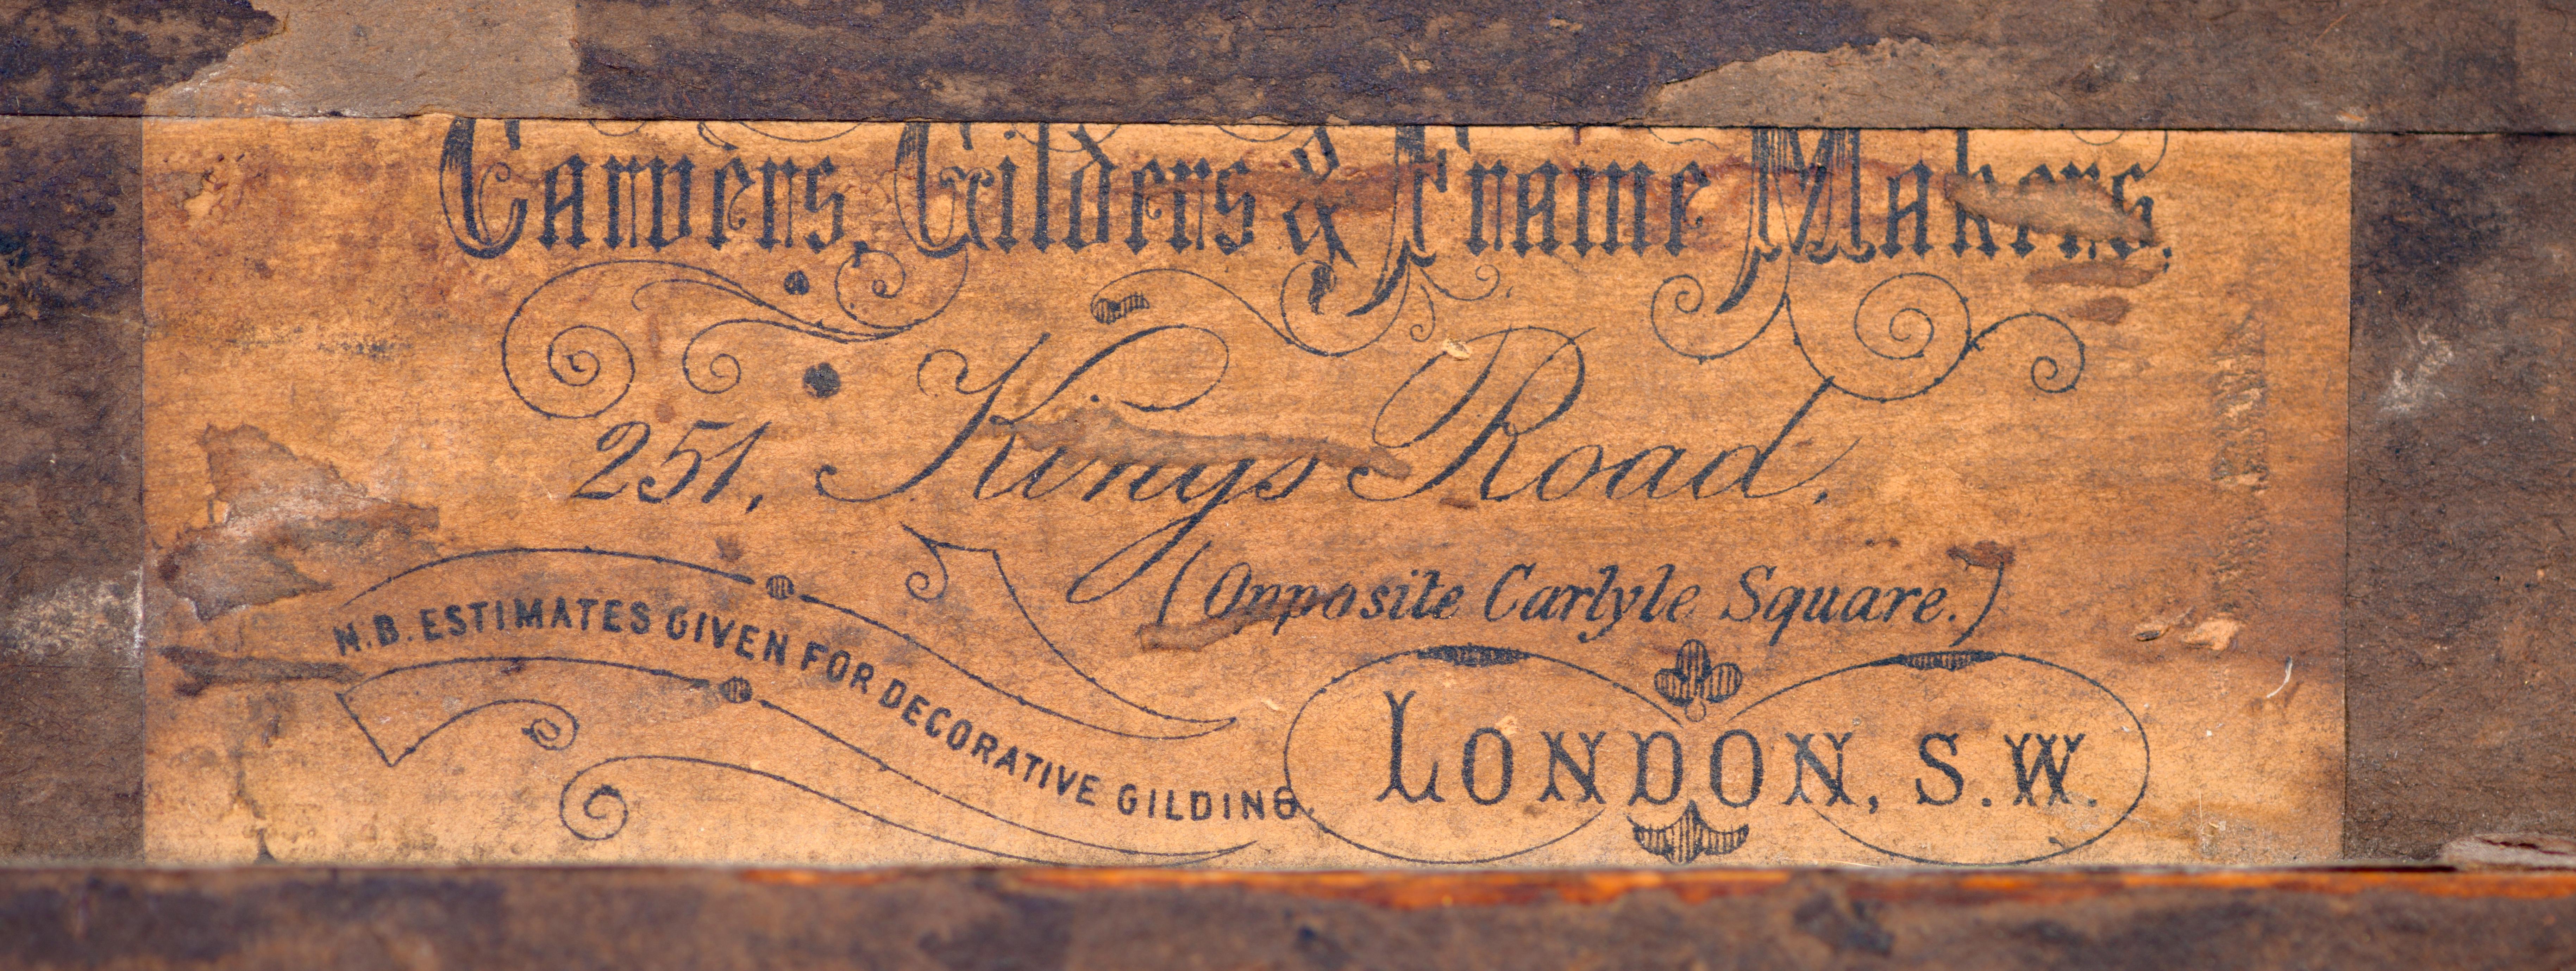 Carvers, Gilders & Frame Makers.
251, Kings Road.
(Opposite Carlyle Square.)
N.B. ESTIMATES GIVEN FOR DECORATIVE GILDING
LONDON, S.W.